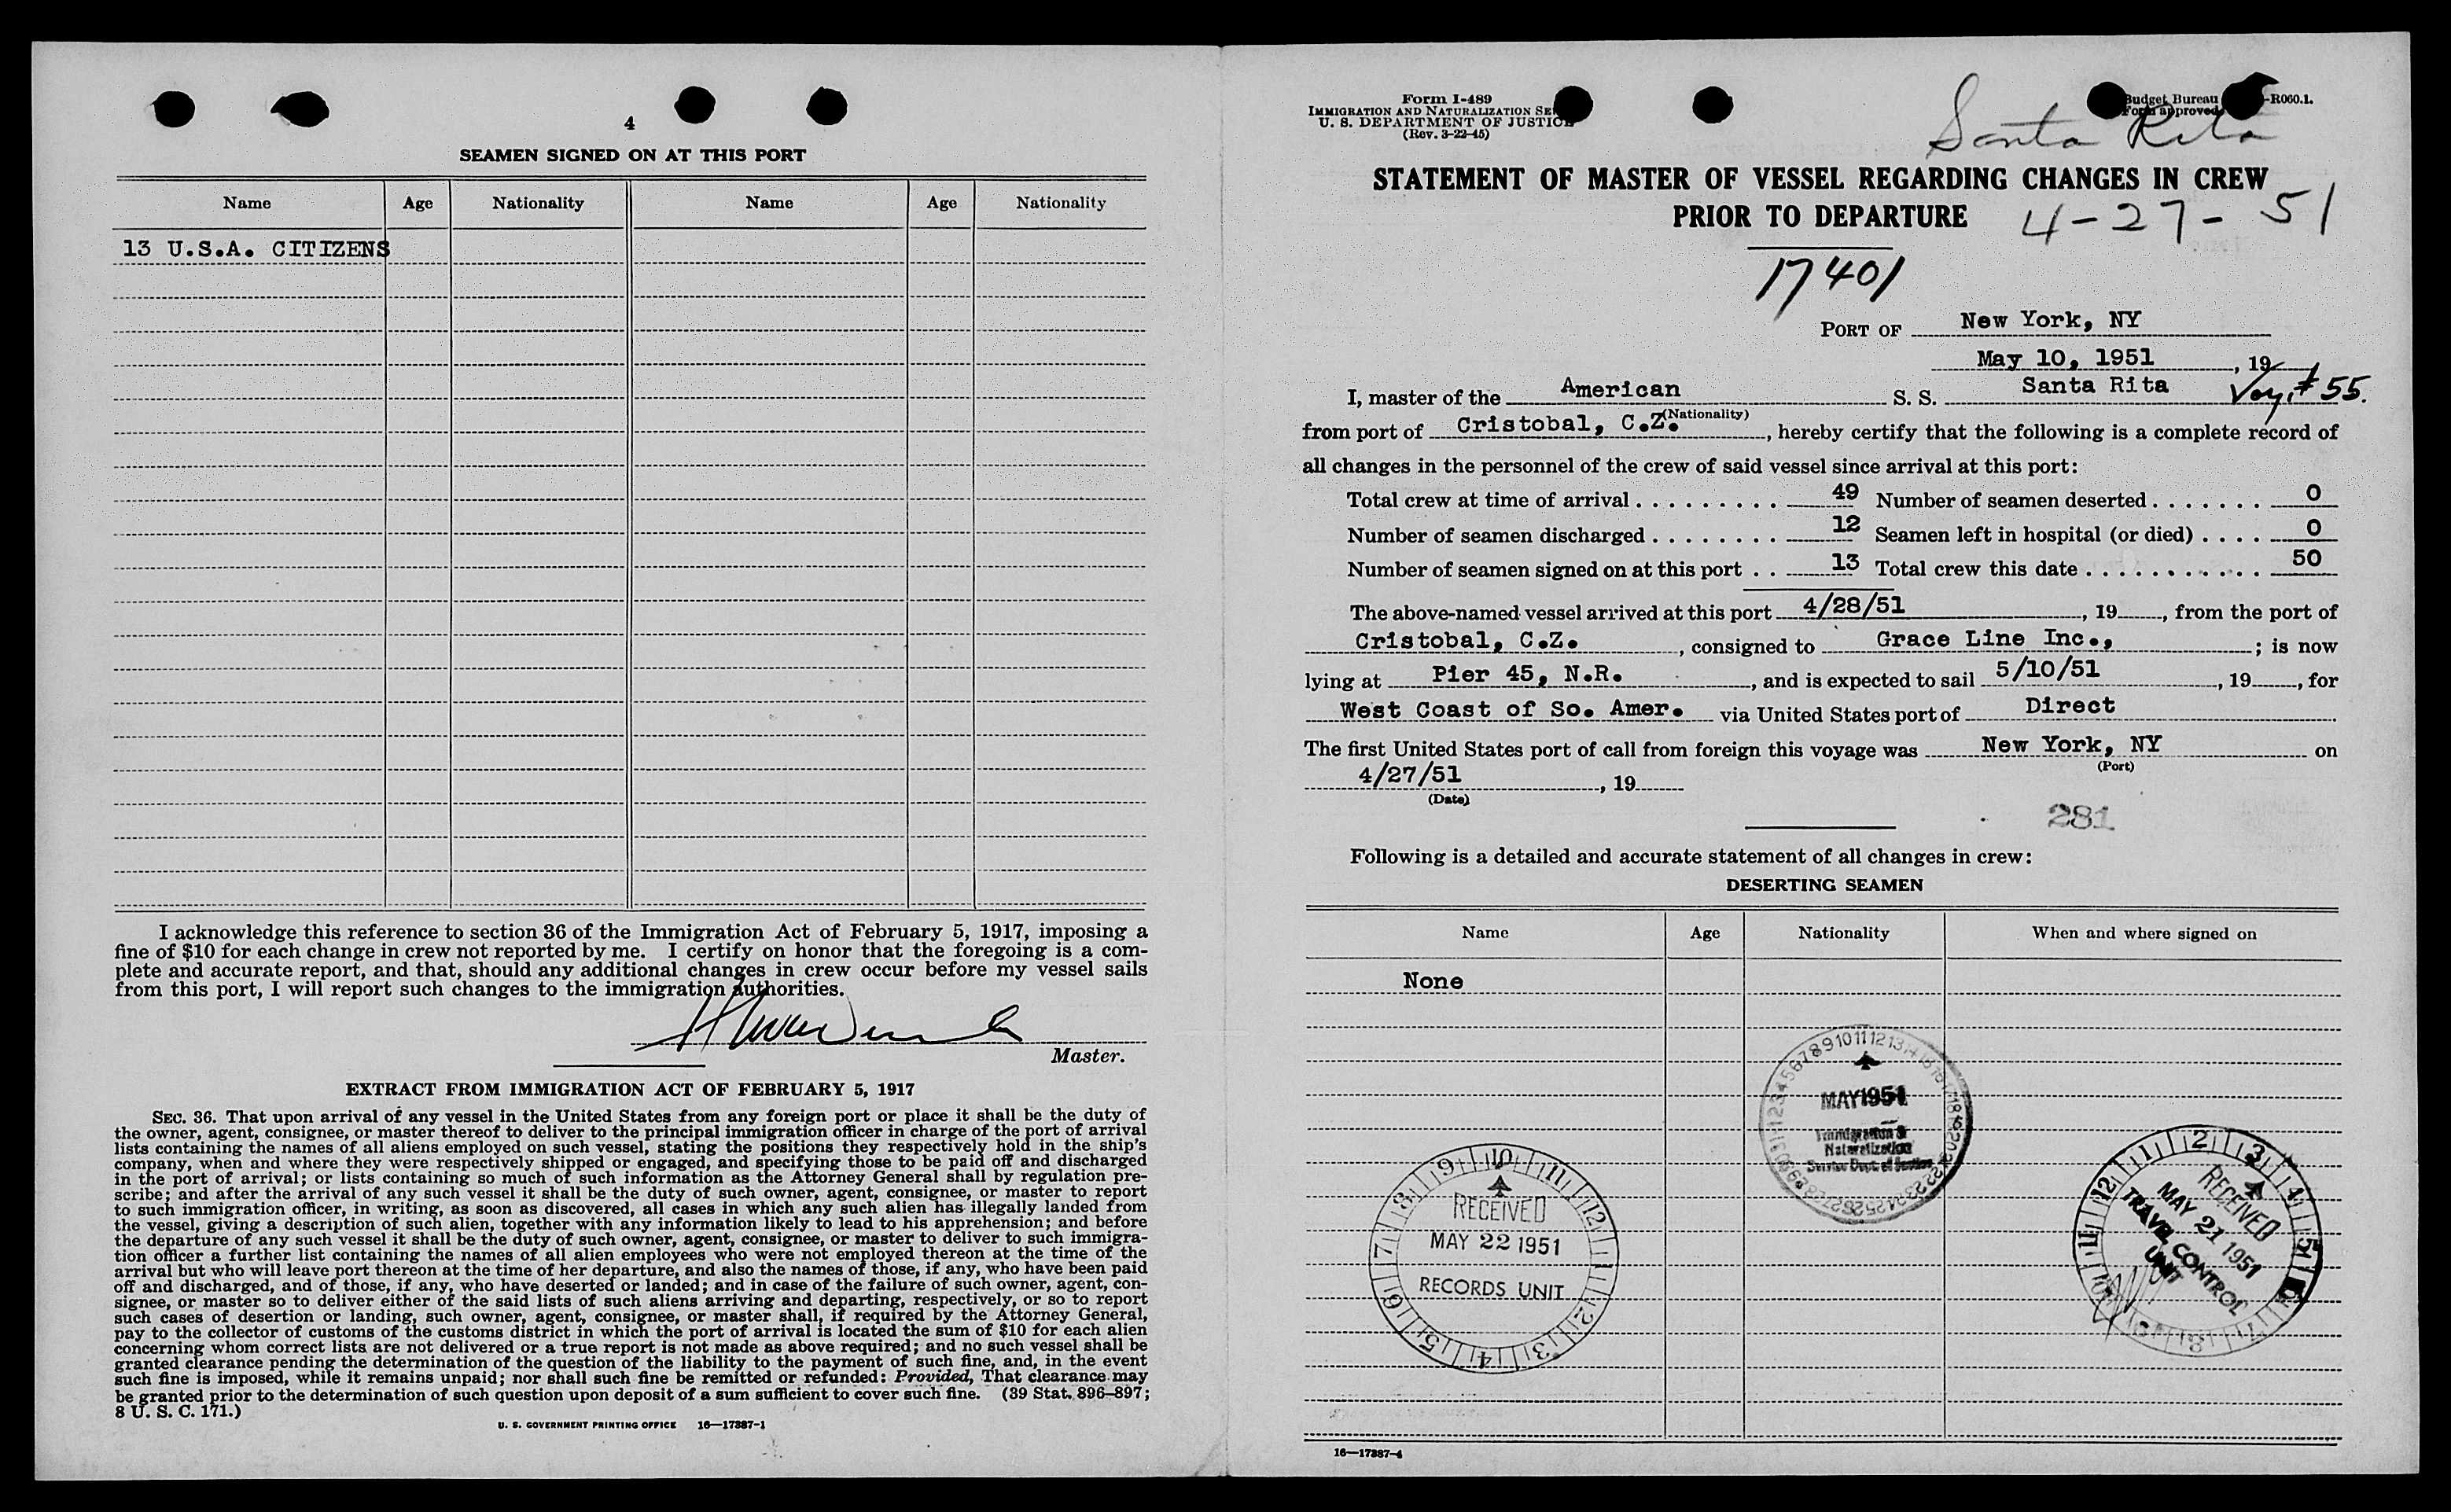 4
SEAMEN SIGNED ON AT THIS PORT
Name Age Nationality Name Age Nationality
13 U.S.A. CITIZENS
I acknowledge this reference to section 36 of the Immigration Act of February 5, 1917, imposing a
fine of $10 for each change in crew not reported by me. I certify on honor that the foregoing is a com-
plete and accurate report, and that, should any additional changes in crew occur before my vessel sails
from this port, I will report such changes to the immigration authorities.
Master.
EXTRACT FROM IMMIGRATION ACT OF FEBRUARY 5, 1917
SEC. 36. That upon arrival of any vessel in the United States from any foreign port or place it shall be the duty of
the owner, agent, consignee, or master thereof to deliver to the principal immigration officer in charge of the port of arrival
lists containing the names of all aliens employed on such vessel, stating the positions they respectively hold in the ship's
company, when and where they were respectively shipped or engaged, and specifying those to be paid off and discharged
in the port of arrival; or lists containing so much of such information as the Attorney General shall by regulation pre-
scribe; and after the arrival of any such vessel it shall be the duty of such owner, agent, consignee, or master to report
to such immigration officer, in writing, as soon as discovered, all cases in which any such alien has illegally landed from
the vessel, giving a description of such alien, together with any information likely to lead to his apprehension; and before
the departure of any such vessel it shall be the duty of such owner, agent, consignee, or master to deliver to such immigra-
tion officer a further list containing the names of all alien employees who were not employed thereon at the time of the
arrival but who will leave port thereon at the time of her departure, and also the names of those, if any, who have been paid
off and discharged, and of those, if any, who have deserted or landed; and in case of the failure of such owner, agent, con-
signee, or master so to deliver either of the said lists of such aliens arriving and departing, respectively, or so to report
such cases of desertion or landing, such owner, agent, consignee, or master shall, if required by the Attorney General,
pay to the collector of customs of the customs district in which the port of arrival is located the sum of $10 for each alien
concerning whom correct lists are not delivered or a true report is not made as above required; and no such vessel shall be
granted clearance pending the determination of the question of the liability to the payment of such fine, and, in the event
such fine is imposed, while it remains unpaid; nor shall such fine be remitted or refunded: Provided, That clearance may
be granted prior to the determination of such question upon deposit of a sum sufficient to cover such fine. (39 Stat. 896–897;
8 U. S. C. 171.)
U. S. GOVERNMENT PRINTING OFFICE 16—17887-1
Form I-489
IMMIGRATION AND NATURALIZATION
U. S. DEPARTMENT OF JUSTICE
(Rev. 3-22-45)
Budget Bureau -R060.1.
Form approved
Santa Rita
STATEMENT OF MASTER OF VESSEL REGARDING CHANGES IN CREW
PRIOR TO DEPARTURE 4-27-51
17401
PORT OF New York, NY
May 10, 1951, 19
I, master of the American S. S. Santa Rita Voy. # 55.
(Nationality)
from port of Cristobal, C.Z., hereby certify that the following is a complete record of
all changes in the personnel of the crew of said vessel since arrival at this port:
Total crew at time of arrival 49 Number of seamen deserted 0
Number of seamen discharged 12 Seamen left in hospital (or died) 0
Number of seamen signed on at this port 13 Total crew this date 50
The above-named vessel arrived at this port 4/28/51, 19, from the port of
Cristobal, C.Z., consigned to Grace Line Inc., ; is now
lying at Pier 45, N.R., and is expected to sail 5/10/51, 19, for
West Coast of So. Amer. via United States port of Direct
The first United States port of call from foreign this voyage was New York, NY on
(Port)
4/27/51, 19
(Date)
281
Following is a detailed and accurate statement of all changes in crew:
DESERTING SEAMEN
Name Age Nationality When and where signed on
None
MAY 1951
Immigration &
Naturalization
Service Dept. of Justice
RECEIVED
MAY 22 1951
RECORDS UNIT
RECEIVED
MAY 21 1951
TRAVEL CONTROL
UNIT
16—17887-4